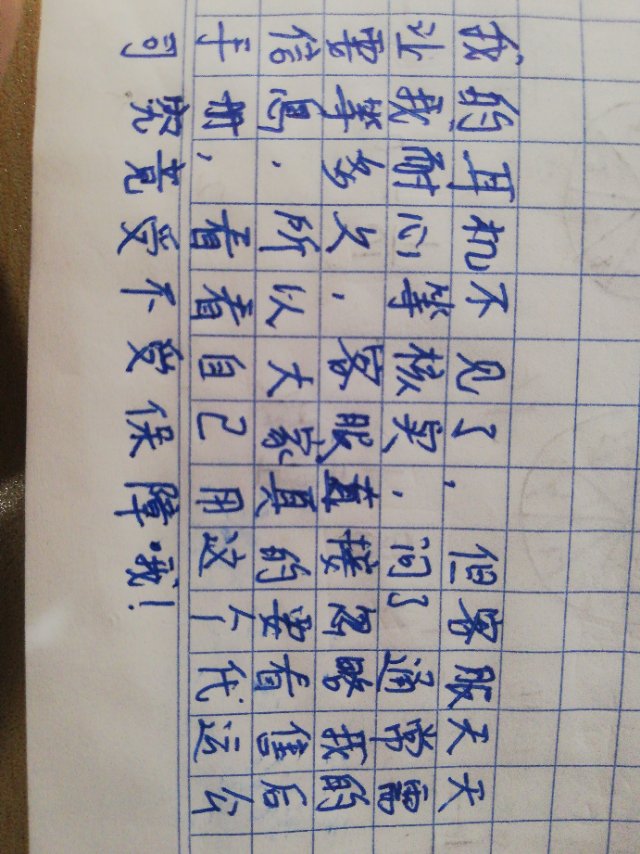 我的耳机不见了，但客服天天
让我耐心等核实，问了通常需
要等多久，客服直接忽略我的
信息．所以大家真的要看售后
手册，看看自己用这个代运公
司究竟受不受保障.我！